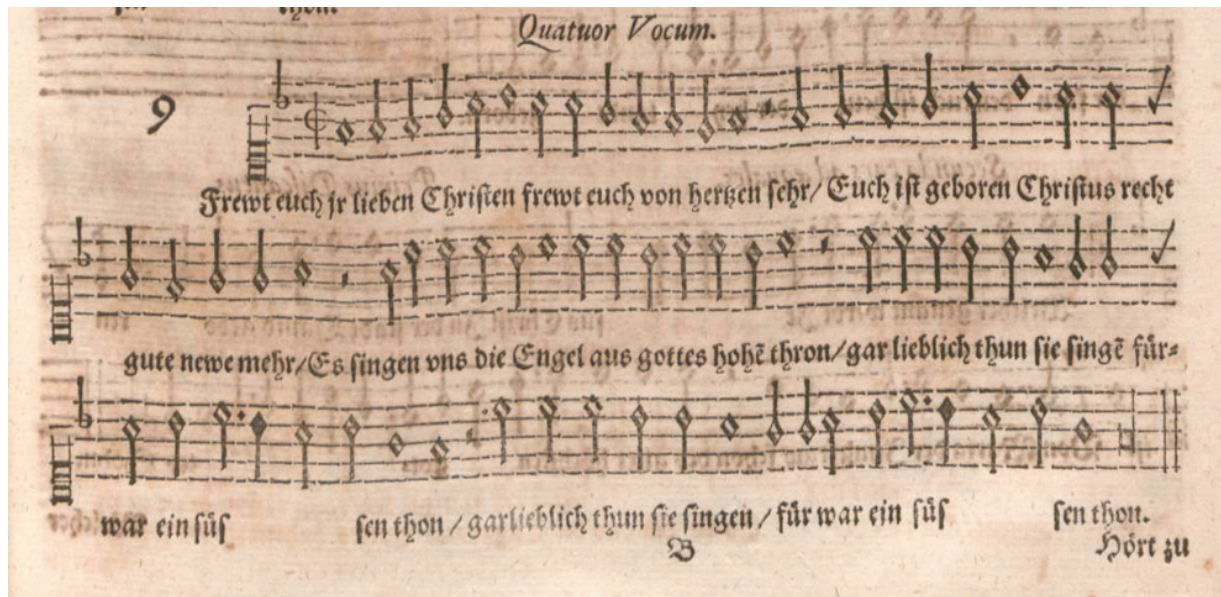 Quatuor Vocum.
9
Frewt euch jr lieben Christen frewt euch von hertzen sehr/ Euch ist geboren Christus recht
gute newe mehr/Es singen vns die Engel aus gottes hohē thron/gar lieblich thun sie singē für⸗
war ein süs sen thon / garlieblich thun sie singen / für war ein süs sen thon.
B
Hört zu